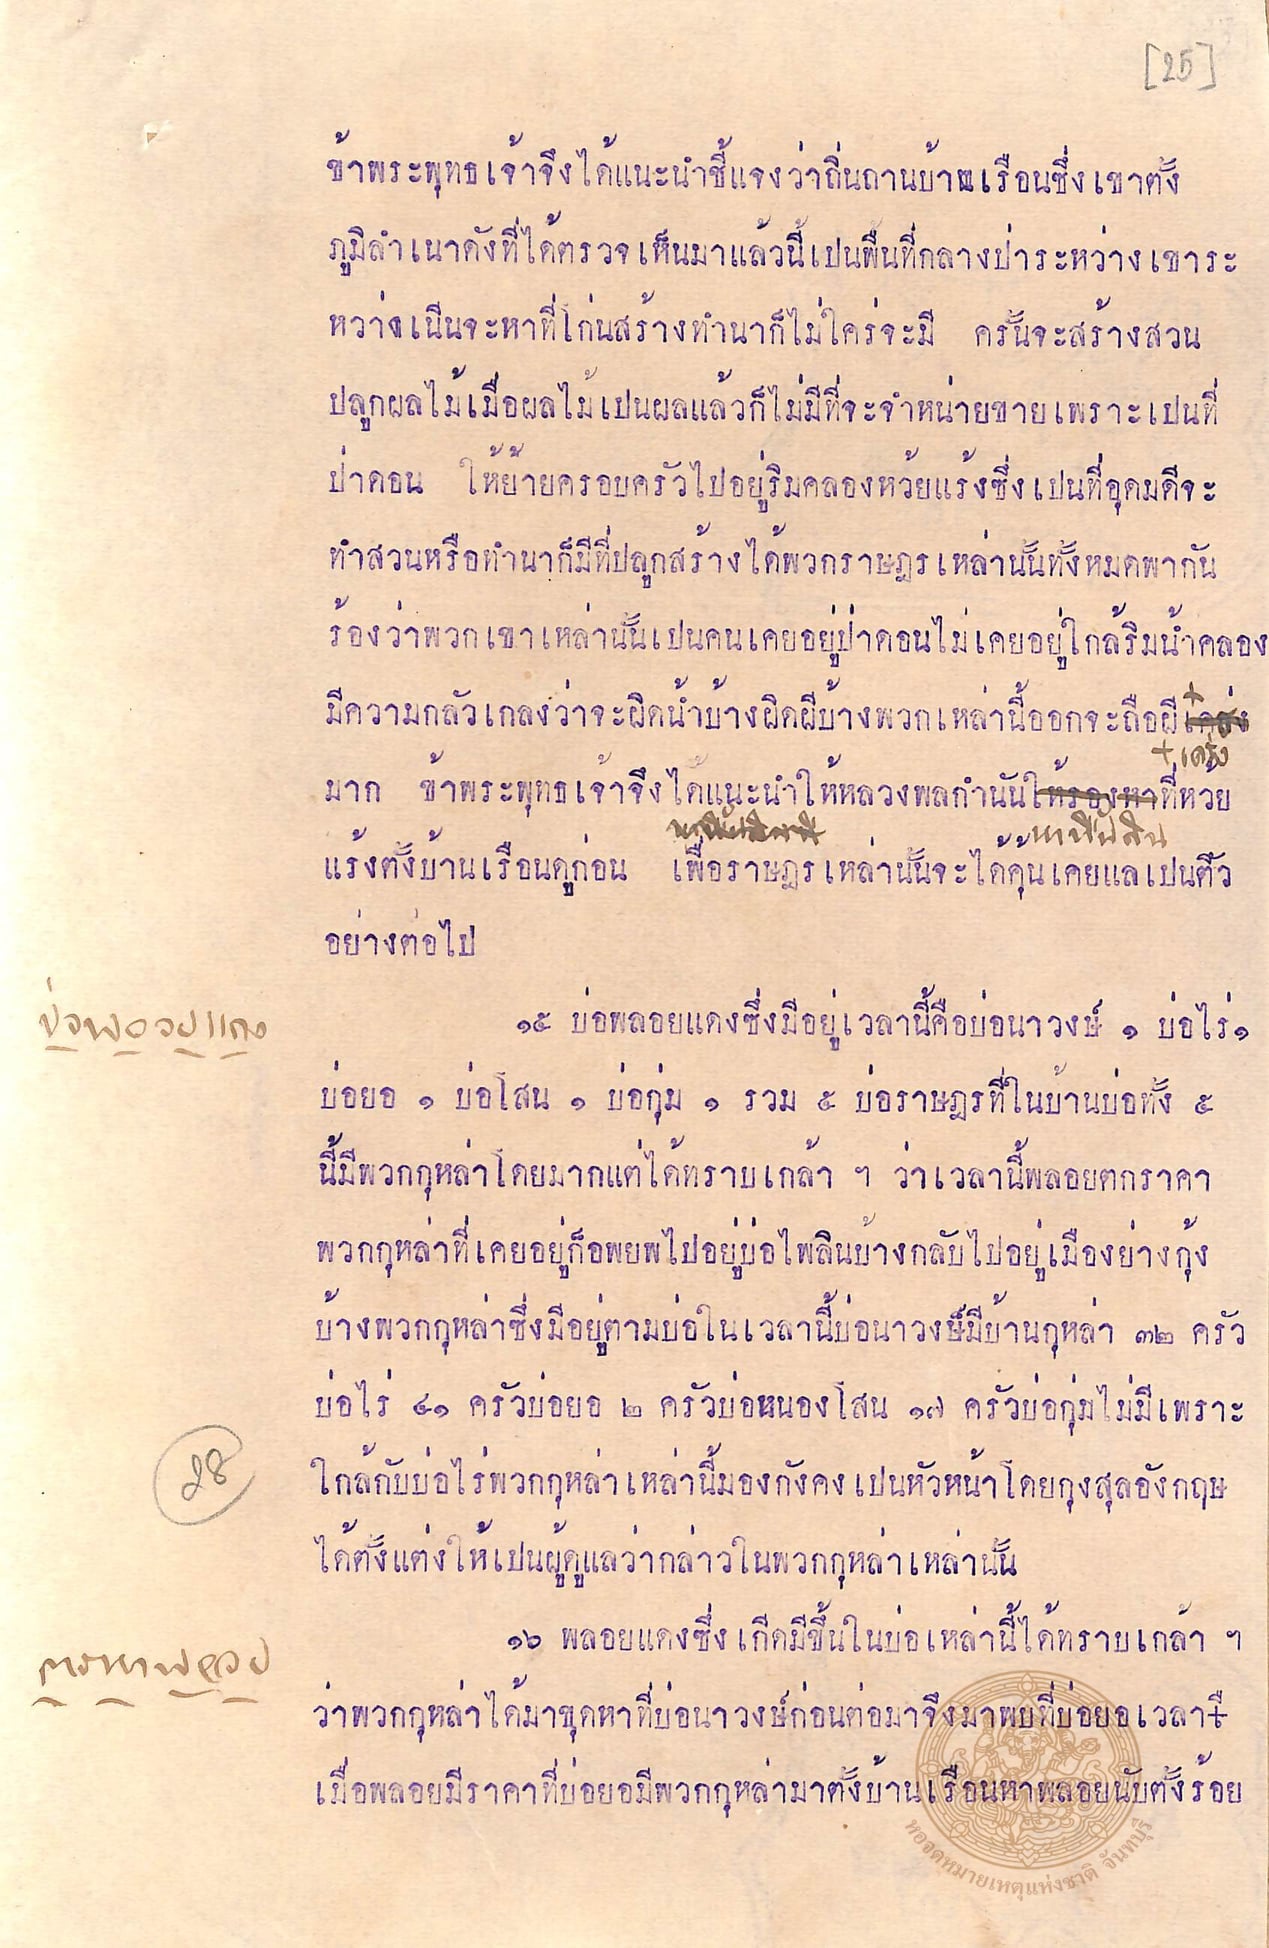 [25]
ข้าพระพุทธเจ้าจึงได้แนะนำชี้แจงว่าถิ่นถานบ้านเรือนซึ่งเขาตั้ง
ภูมิลำเนาดังที่ได้ตรวจเห็นมาแล้วนี้เปนพื้นที่กลางป่าระหว่างเขาระ
หว่างเนินจะหาที่โก่นสร้างทำนาก็ไม่ใคร่จะมี ครั้นจะสร้างสวน
ปลูกผลไม้เมื่อผลไม้เปนผลแล้วก็ไม่มีที่จะจำหน่ายขายเพราะเปนที่
ป่าดอน ให้ย้ายครอบครัวไปอยู่ริมคลองห้วยแร้งซึ่งเปนที่อุดมดีจะ
ทำสวนหรือทำนาก็มีที่ปลูกสร้างได้พวกราษฎรเหล่านั้นทั้งหมดพากัน
ร้องว่าพวกเขาเหล่านั้นเปนคนเคยอยู่ป่าดอนไม่เคยอยู่ใกล้ริมน้ำคลอง
มีความกลัวเกลงว่าจะผิดน้ำบ้างผิดผีบ้างพวกเหล่านี้ออกจะถือผี
+เคร่ง
มาก ข้าพระพุทธเจ้าจึงได้แนะนำให้หลวงพลกำนันให้รองหาที่หวย
แร้งตั้งบ้านเรือนดูก่อน เพื่อราษฎรเหล่านั้นจะได้คุ้นเคยแลเปนตัว
อย่างต่อไป
บ่อพลอยแดง
๑๕ บ่อพลอยแดงซึ่งมีอยู่เวลานี้คือบ่อนาวงษ์ ๑ บ่อไร่๑
บ่อยอ ๑ บ่อโสน ๑ บ่อกุ่ม ๑ รวม ๕ บ่อราษฎรที่ในบ้านบ่อทั้ง ๕
นี้มีพวกกุหล่าโดยมากแต่ได้ทราบเกล้า ฯ ว่าเวลานี้พลอยตกราคา
พวกกุหล่าที่เคยอยู่ก็อพยพไปอยู่บ่อไพลินบ้างกลับไปอยู่เมืองย่างกุ้ง
บ้างพวกกุหล่าซึ่งมีอยู่ตามบ่อในเวลานี้บ่อนาวงษ์มีบ้านกุหล่า ๓๒ ครัว
บ่อไร่ ๔๑ ครัวบ่อยอ ๒ ครัวบ่อหนองโสน ๑๗ ครัวบ่อกุ่มไม่มีเพราะ
ใกล้กับบ่อไร่พวกกุหล่าเหล่านี้มองกังคงเปนหัวหน้าโดยกุงสุลอังกฤษ
28
ได้ตั้งแต่งให้เปนผู้ดูแลว่ากล่าวในพวกกุหล่าเหล่านั้น
๑๖ พลอยแดงซึ่งเกิดมีขึ้นในบ่อเหล่านี้ได้ทราบเกล้า ฯ
การหาพลอย
ว่าพวกกุหล่าได้มาขุดหาที่บ่อนาวงษ์ก่อนต่อมาจึงมาพบที่บ่อยอเวลา
เมื่อพลอยมีราคาที่บ่อยอมีพวกกุหล่ามาตั้งบ้านเรือนหาพลอยนับตั้งร้อย
หอจดหมายเหตุแห่งชาติ จันทบุรี